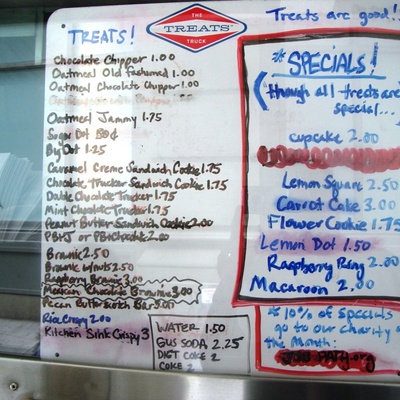 TREATS!
THE
TREATS
TRUCK
Treats are good!!
Chocolate Chipper 1.00
Oatmeal Old fashioned 1.00
Oatmeal Chocolate Chipper 1.00
Oatmeal Jammy 1.75
Sugar Dot 80¢
Big Dot 1.25
Caramel Creme Sandwich Cookie 1.75
Chocolate Trucker Sandwich Cookie 1.75
Double Chocolate Trucker 1.75
Mint Chocolate Trucker 1.75
Peanut Butter Sandwich Cookie 2.00
PB+J or PB+Chocolate 2.00
Brownie 2.50
Brownie w/nuts 2.50
Raspberry Brownie 3.00
Mexican Chocolate Brownie 3.00
Pecan Butterscotch Bar 3.00
Rice Crispy 2.00
Kitchen Sink Crispy 3
WATER 1.50
GUS SODA 2.25
DIET COKE 2
COKE 2
* SPECIALS!
(though all treats are
special...
cupcake 2.00
Lemon Square 2.50
Carrot Cake 3.00
Flower Cookie 1.75
Lemon Dot 1.50
Raspberry Ring 2.00
Macaroon 2.00
* 10% of Specials
go to our Charity of
the Month: